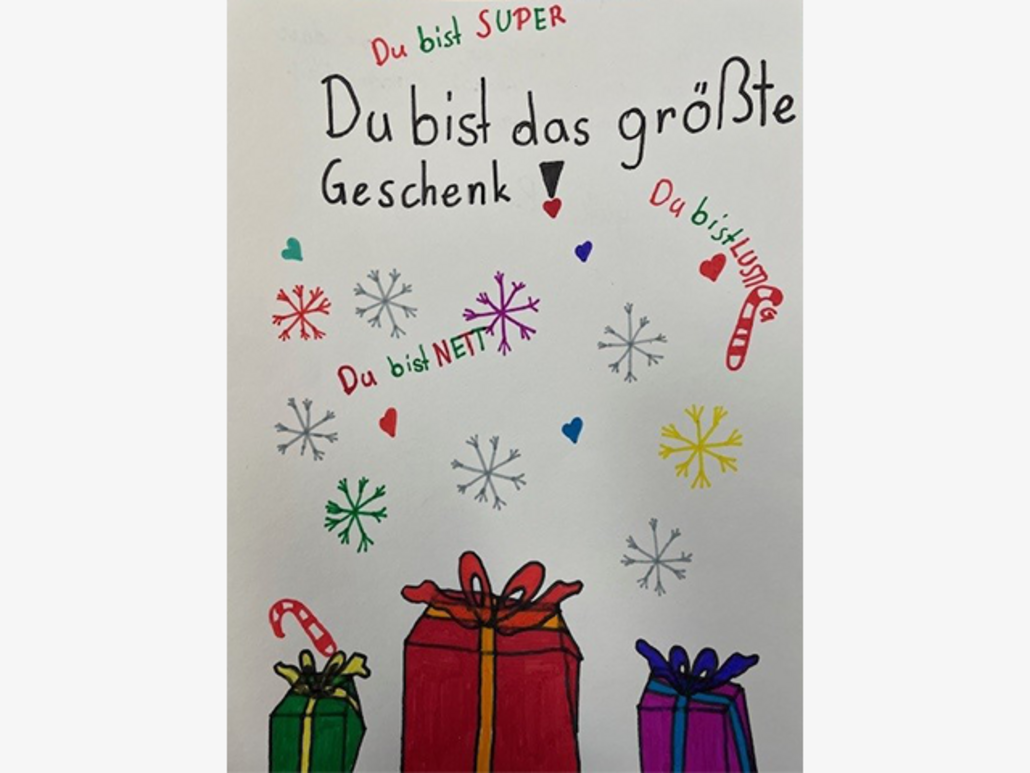 Du bist SUPER
Du bist das größte
Geschenk !
Du bist LUSTIG
Du bist NETT